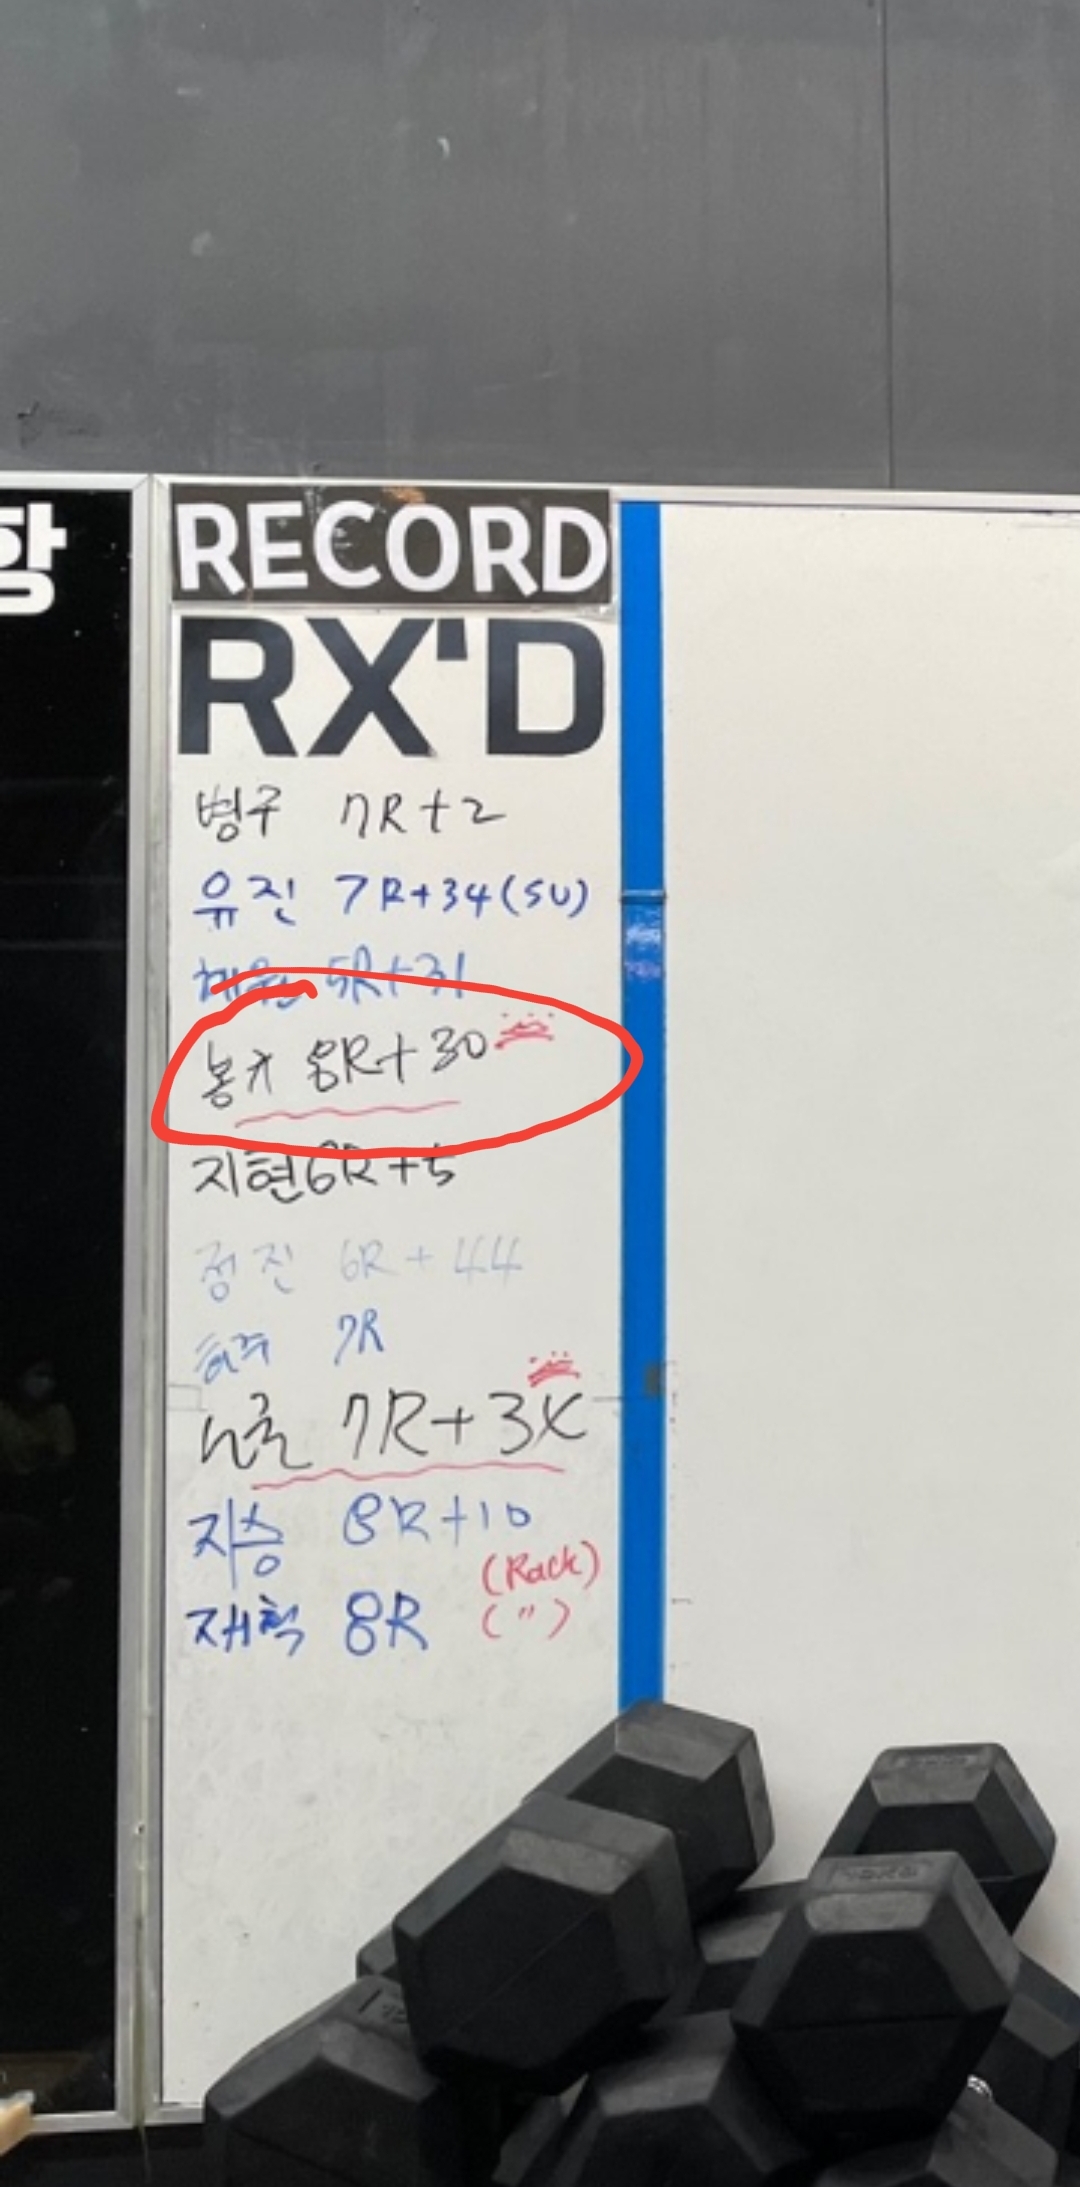 항
RECORD
RX'D
병구 7R+2
유진 7R+34(SU)
5R+31
봉규 8R+30
지현 6R+5
정진 6R+44
7R
7R+3
지승 8R+10
(Rack)
재혁 8R (")